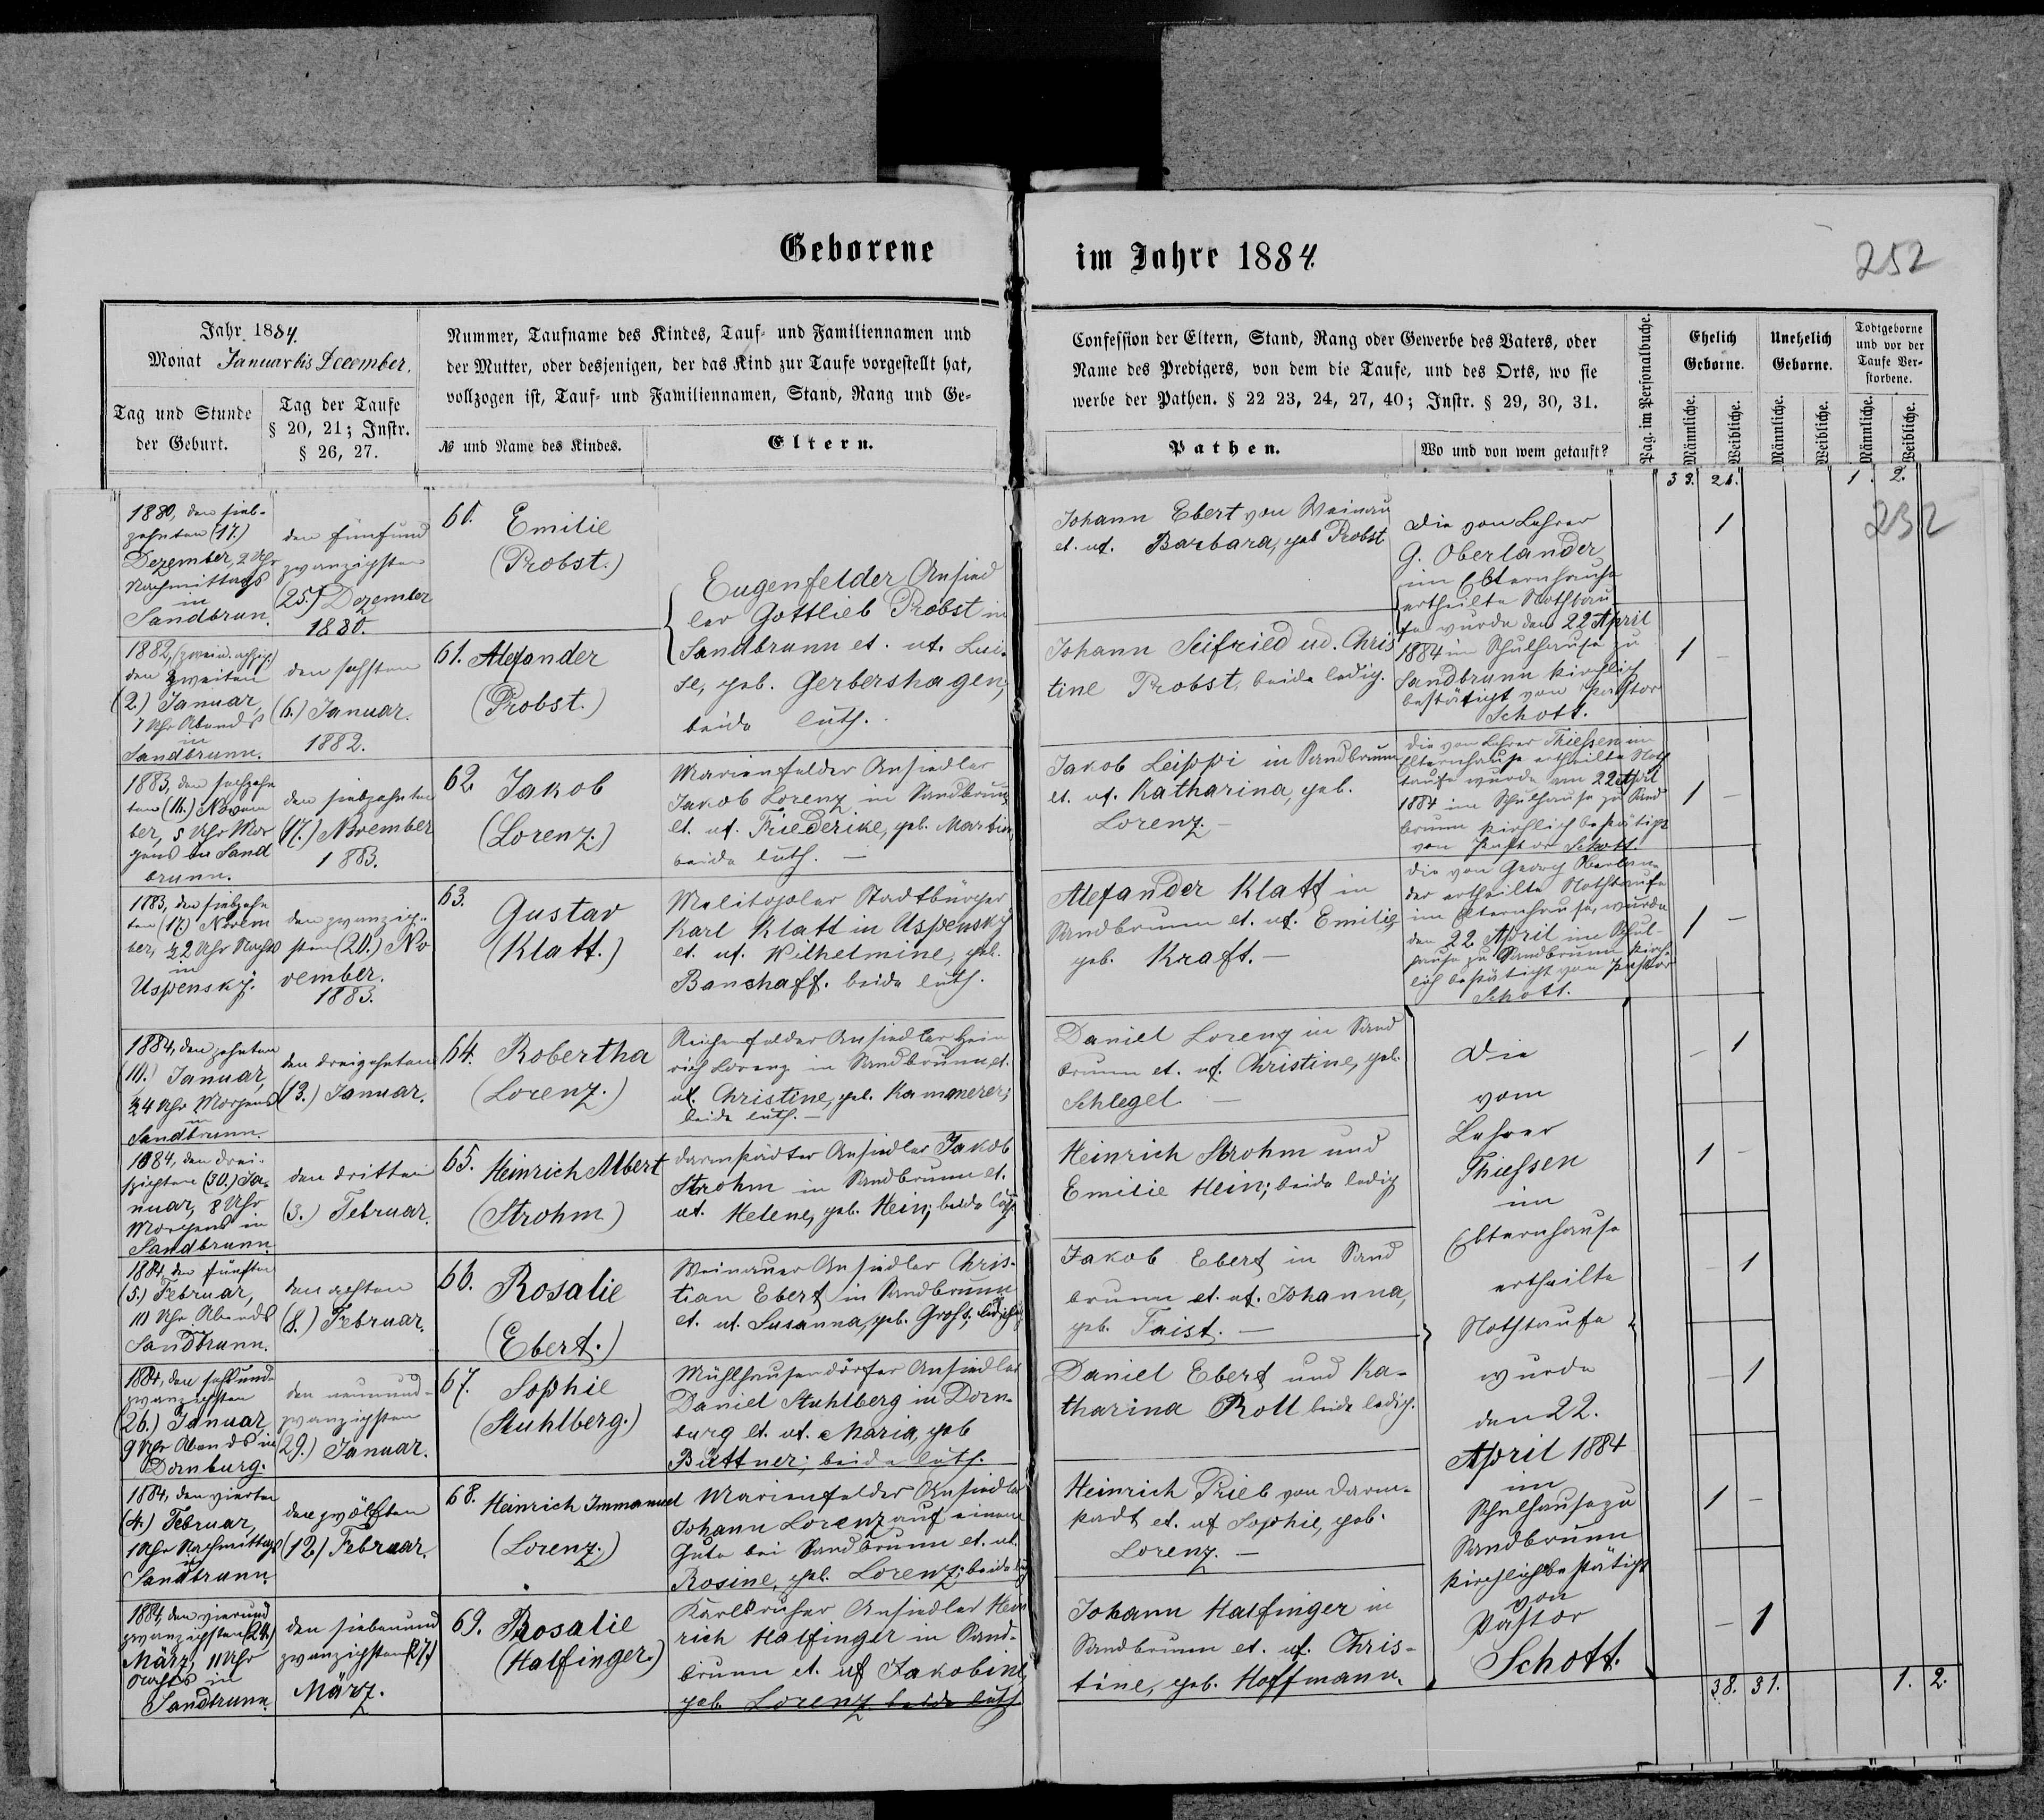 Geborene im Jahre 1884.
252
Jahr 1884.
Monat Januar bis December.
Tag und Stunde
der Geburt.
Tag der Taufe
§ 20, 21; Instr.
§ 26, 27.
Nummer, Taufname des Kindes, Tauf- und Familiennamen und
der Mutter, oder desjenigen, der das Kind zur Taufe vorgestellt hat,
vollzogen ist, Tauf- und Familiennamen, Stand, Rang und Ge-
№ und Name des Kindes.
Eltern.
Confession der Eltern, Stand, Rang oder Gewerbe des Vaters, oder
Name des Predigers, von dem die Taufe, und des Orts, wo sie
werbe der Pathen. § 22 23, 24, 27, 40; Instr. § 29, 30, 31.
Pathen.
Wo und von wem getauft?
Pag. im Personalbuche.
Ehelich
Geborne.
Unehelich
Geborne.
Todtgeborne
und vor der
Taufe Ver-
storbene.
Männliche.
Weibliche.
Männliche.
Weibliche.
Männliche.
Weibliche.
1. 2.
232
1880, den sieb-
zehnten (17.)
Dezember, 2 Uhr
Nachmittags
in
Sandbrun.
den fünfund
zwanzigsten
(25.) Dezember
1880.
60. Emilie
(Probst.)
Eugenfelder Ansied
ler Gottlieb Probst in
Sandbrunn et. ux. Lui-
se, geb. Gerbershagen,
beide luth.
Johann Ebert von Weinau
et. ux. Barbara, geb Probst
Die von Lehrer
G. Oberlander
im Elternhause
ertheilte Nothtau
fe wurde den 22 April
1884 im Schulhause zu
Sandbrunn kirchlich
bestätigt von Pastor
Schott.
1
1882,
den zweiten
(2.) Januar,
7 Uhr Abends
in
Sandbrunn.
den sechsten
(6.) Januar.
1882.
61. Alexander
(Probst.)
Johann Seifried ud. Chris
tine Probst, beide ledig.
1 -
1883, den sechzehn
ten (16.) Novem
ber, 5 Uhr Mor
gens in Sand
brunn.
den siebzehnten
(17.) November
1883.
62. Jakob
(Lorenz.)
Marienfelder Ansiedler
Jakob Lorenz in Sandbrunn
et. ux. Friederike, geb. Martin,
beide luth. -
Jakob Leippi in Sandbrunn
et. ux. Katharina, geb.
Lorenz. -
Die vom Lehrer Thießen im
Elternhause ertheilte Noth
taufe wurde am 22 April
1884 im Schulhause zu Sand
brunn kirchlich bestätigt
von Pastor Schott.
1 -
1883, den siebzehn
ten (17.) Novem
ber, ½ 2 Uhr Nachts
in
Uspensky.
den zwanzig-
sten (20.) No
vember.
1883.
63. Gustav
(Klatt.)
Melitopoler Stadtbürger
Karl Klatt in Uspensky
et. ux. Wilhelmine, geb.
Banschaff. beide luth.
Alexander Klatt in
Sandbrunn et. ux. Emilie,
geb. Kraft. -
Die von Georg Oberlan-
der ertheilte Nothtaufe
im Elternhause, wurde
den 22 April im Schul-
hause zu Sandbrunn kirch-
lich bestätigt von Pastor
Schott.
1 -
1884, den zehnten
(10.) Januar,
½ 4 Uhr Morgens
in
Sandbrunn.
den dreizehnten
(13.) Januar.
64. Robertha
(Lorenz.)
Reichenfelder Ansiedler Hein
rich Lorenz in Sandbrunn et.
ux. Christine, geb. Kammerer;
beide luth. -
Daniel Lorenz in Sand
brunn et. ux. Christine, geb.
Schlegel. -
- 1
Die
vom
Lehrer
Thießen
im
Elternhause
ertheilte
Nothtaufe
wurde
den 22.
April 1884
im
Schulhause zu
Sandbrunn
kirchlich bestätigt
von
Pastor
Schott.
1884, den drei-
ßigsten (30.) Ja-
nuar, 8 Uhr
Morgens in
Sandbrunn.
den dritten
(3.) Februar.
65. Heinrich Albert
(Strohm)
Darmstädter Ansiedler Jakob
Strohm in Sandbrunn et.
ux. Helene, geb. Hein; beide luth.
Heinrich Strohm und
Emilie Hein; beide ledig
1 -
1884, den fünften
(5.) Februar,
10 Uhr Abends
Sandbrunn.
den achten
(8.) Februar.
66. Rosalie
(Ebert.)
Weinauer Ansiedler Chris-
tian Ebert in Sandbrunn
et. ux. Susanna, geb. Groß;
Jakob Ebert in Sand
brunn et. ux. Johanna,
geb. Faist. -
- 1
1884, den sechsund-
zwanzigsten
(26.) Januar
9 Uhr Abends in
Dornburg.
den neunund-
zwanzigsten
(29.) Januar.
67. Sophie
(Stuhlberg.)
Mühlhausendörfer Ansiedler
Daniel Stuhlberg in Dorn-
burg et. ux. Maria, geb
Büttner; beide luth.
Daniel Ebert und Ka-
tharina Roll beide ledig.
- 1
1884, den vierten
(4.) Februar,
1 Uhr Nachmittags
in
Sandbrunn.
den zwölften
(12.) Februar.
68. Heinrich Immanuel
(Lorenz.)
Marienfelder Ansiedler
Johann Lorenz auf einem
Gute bei Sandbrunn et. ux.
Rosine, geb. Lorenz; beide
Heinrich Prieb von Darm-
stadt et. ux Sophie, geb.
Lorenz. -
1 -
1884, den vierund
zwanzigsten (24.)
März, 11 Uhr
Nachts in
Sandbrunn.
den siebenund
zwanzigsten (27.)
März.
69. Rosalie
(Halfinger.)
Karlsruher Ansiedler Hein
rich Halfinger in Sand-
brunn et. ux Jakobine
geb. Lorenz. beide luth
Johann Halfinger in
Sandbrunn et. ux. Chris-
tine, geb. Hoffmann.
- 1
38. 31. 1. 2.